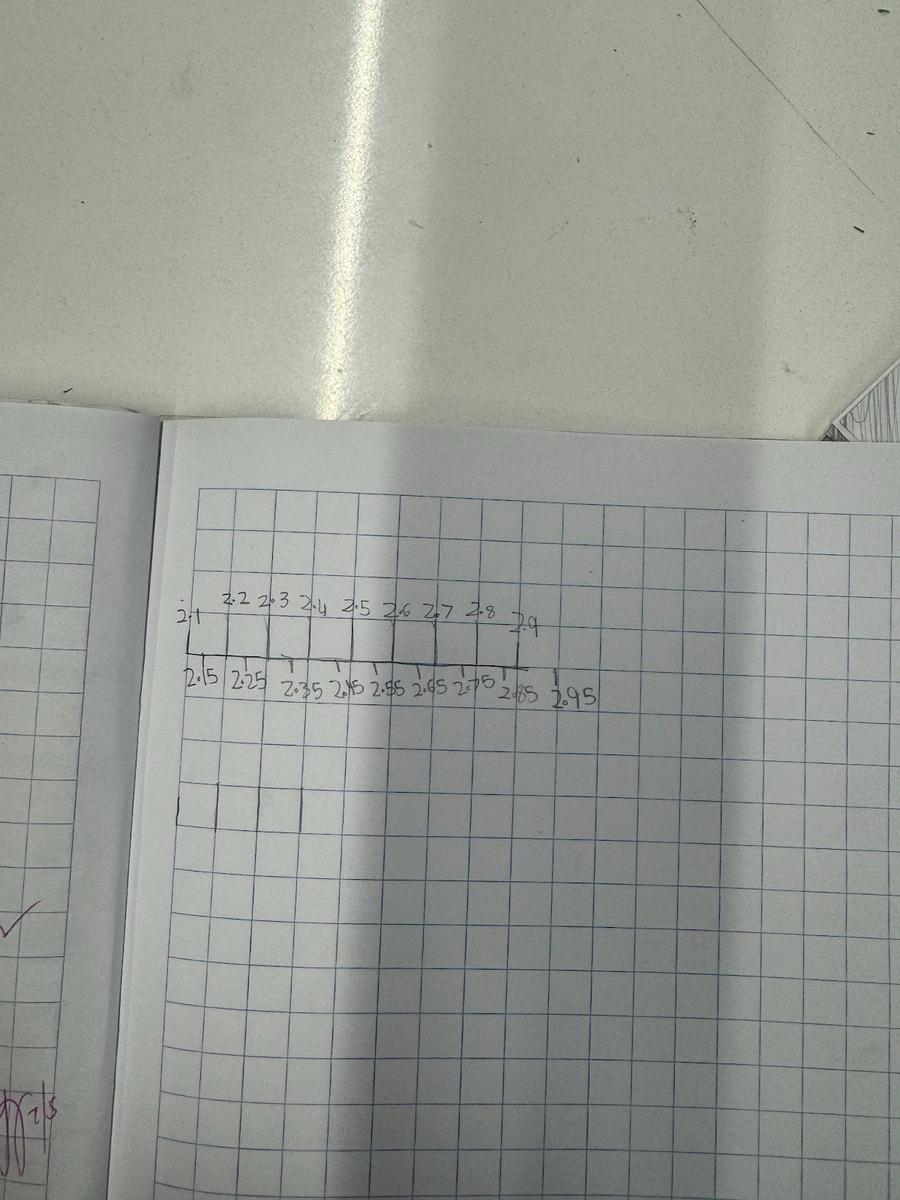 2.1 2.2 2.3 2.4 2.5 2.6 2.7 2.8 2.9
2.15 2.25 2.35 2.45 2.55 2.65 2.75 2.85 2.95